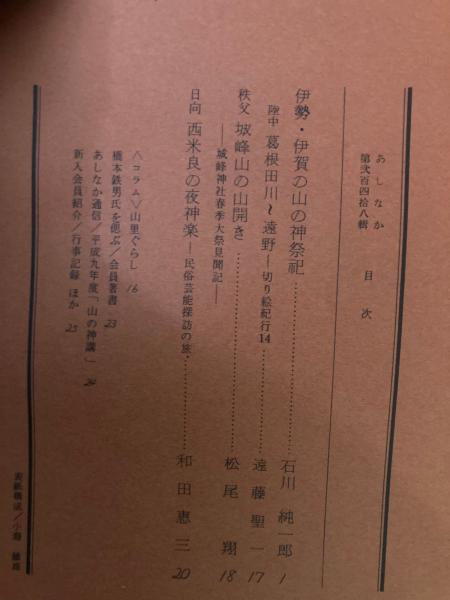 あしなか
第弐百四拾八輯　目次
伊勢・伊賀の山の神祭祀……石川 純一郎 1
陸中 葛根田川〜遠野―切り絵紀行14……遠藤聖一 17
秩父 城峰山の山開き……松尾 翔 18
―城峰神社春季大祭見聞記―
日向 西米良の夜神楽―民俗芸能探訪の旅……和田恵三 20
〈コラム〉山里ぐらし 16
橋本鉄男氏を偲ぶ／会員著書 23
あしなか通信／平成九年度「山の神講」 24
新入会員紹介／行事記録 ほか 25
表紙構成／小